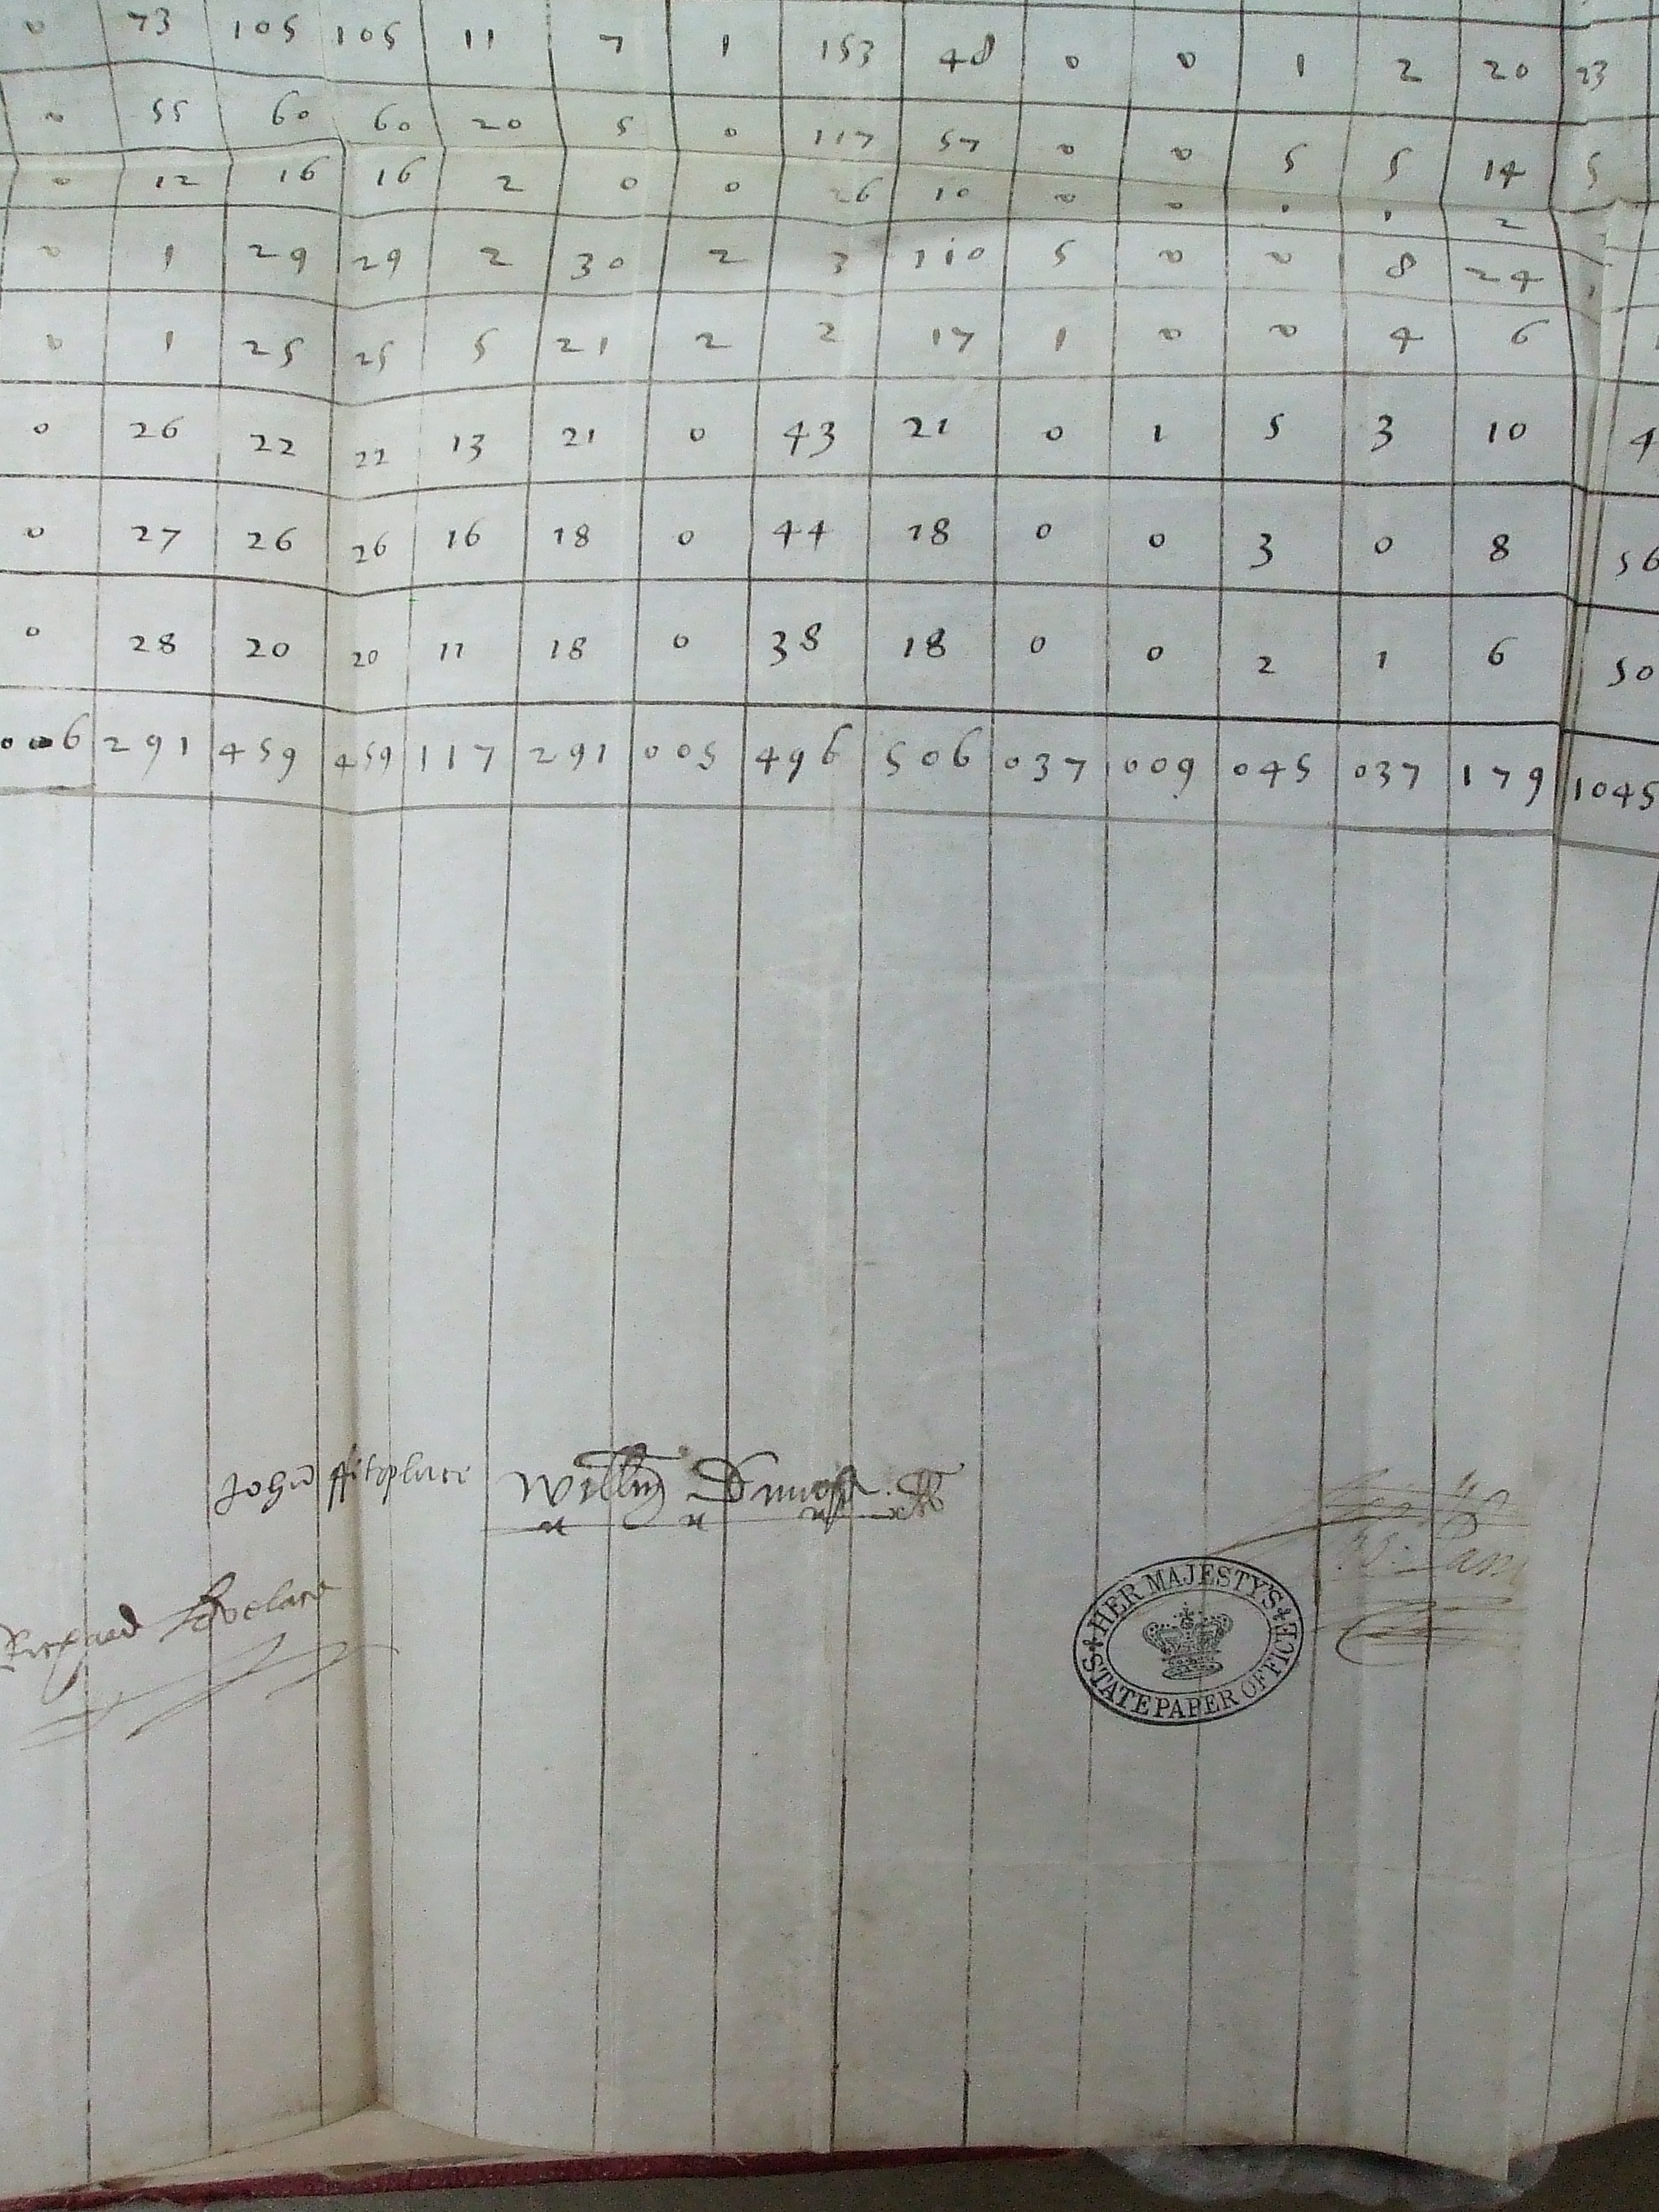 0 73 105 105 11 7 1 153 48 0 0 1 2 20 23
0 55 60 60 20 5 0 117 57 0 0 5 5 14 5
0 12 16 16 2 0 0 26 10 0 0 1 1 2
0 1 29 29 2 30 2 3 110 5 0 0 8 24
0 1 25 25 5 21 2 2 17 1 0 0 4 6
0 26 22 22 13 21 0 43 21 0 1 5 3 10 4
0 27 26 26 16 18 0 44 18 0 0 3 0 8 56
0 28 20 20 11 18 0 38 18 0 0 2 1 6 50
006 291 459 459 117 291 005 496 506 037 009 045 037 179 1045
John ffitzplace Willm
Lovelace
HER MAJESTY'S
STATE PAPER OFFICE